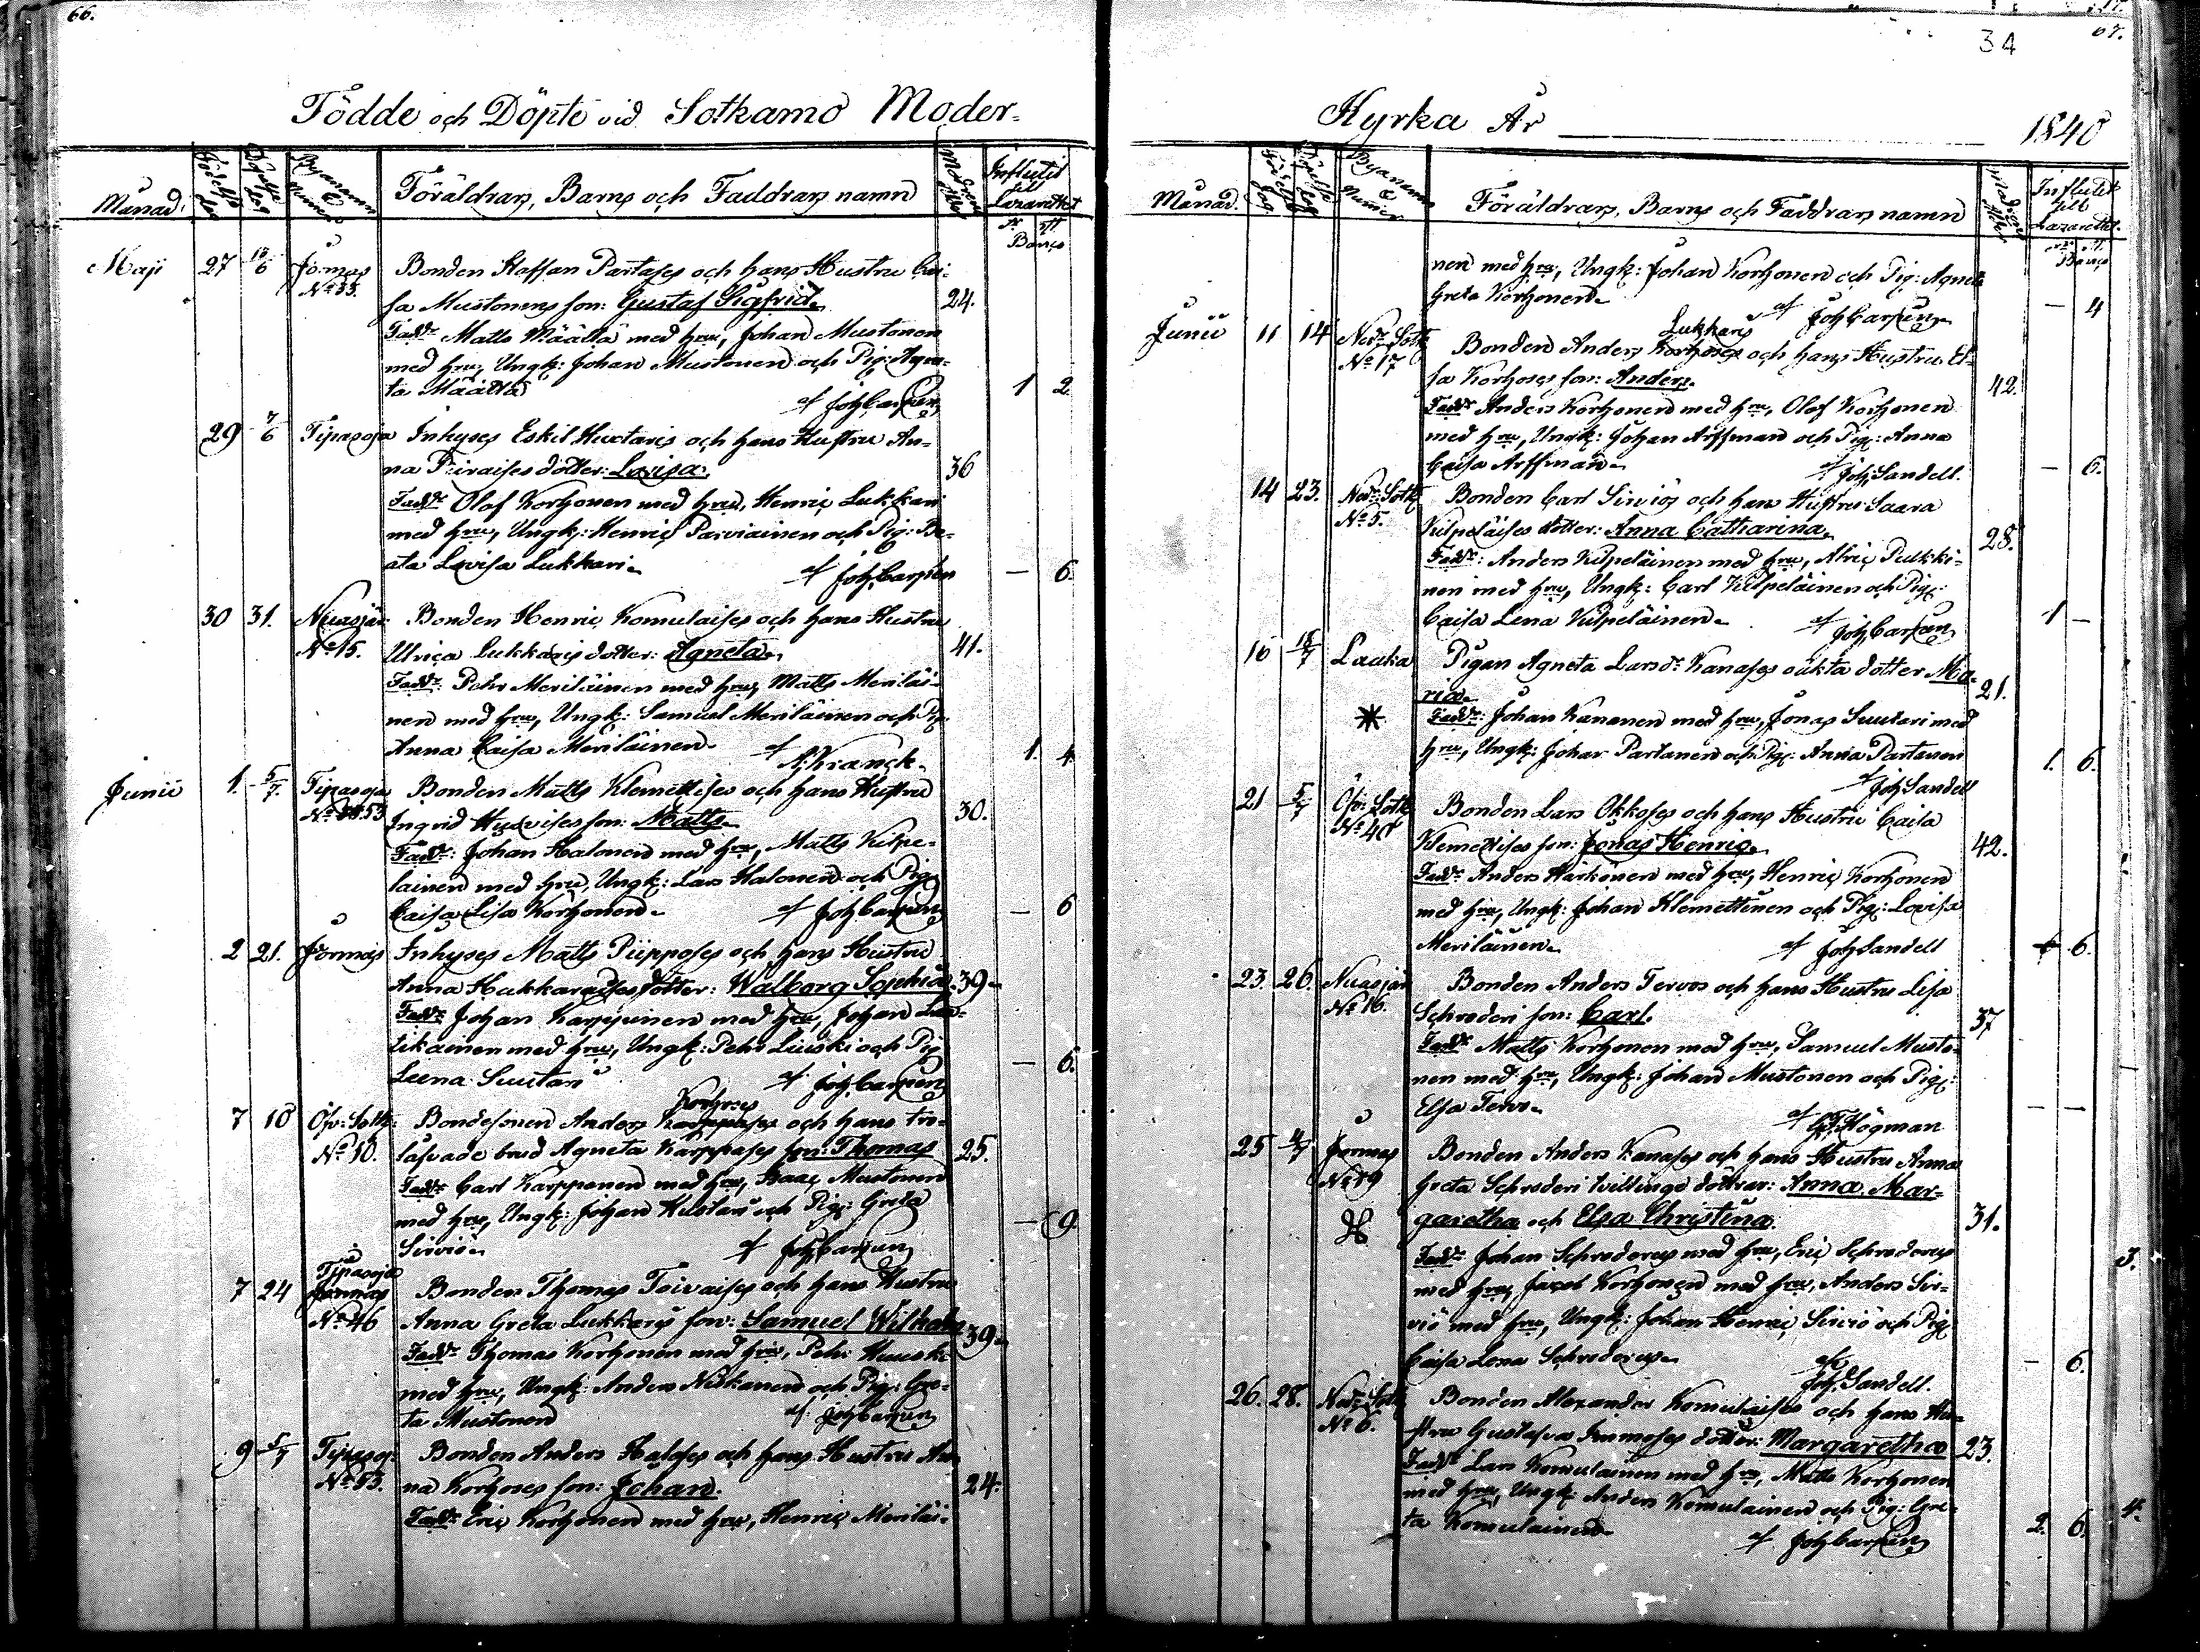 66.
Födde och Döpte vid Sotkamo Moder-
Månad. Födelse dag Döpelse dag Byanamn & Numer Föräldrars, Barns och Faddrars namn Modrens Ålder Influtit till Lazarettet
Banco
Maji 27 18/6 Jormas Bonden Staffan Partases och hans Hustru Cai-
No 33. sa Mustonens son: Gustaf Sigfrid. 24.
Faddr Matts Määttä med hru, Johan Mustonen
med hru, Ungk: Johan Mustonen och Pig: Agne-
ta Määttä af Joh Carpén 1 2
29 7/6 Tipasoja Inhyses Eskil Huotaris och hans Hustru An-
na Piiraises dotter: Lovisa. 36
Faddr Olof Korhonen med hru, Henric Lukkari
med hru, Ungk: Henric Parviainen och Pig: Be-
ata Lovisa Lukkari. af Joh Carpén — 6.
30 31. Nuasjär: Bonden Henric Komulaises och hans Hustru
No 15. Ulrica Lukkaris dotter: Agneta. 41.
Faddr: Pehr Meriläinen med hru, Matts Meriläi-
nen med hru, Ungk: Samuel Meriläinen och Pig:
Anna Caisa Meriläinen. af Kranck. 1. 4
Junii 1. 5/7. Tipasoja Bonden Matts Klemettises och hans Hustru
No 53 Ingrid son: Matts. 30.
Faddr: Johan Halonen med hru, Matts Kilpe-
lainen med hru, Ungk: Lars Halonen och Pig:
Caisa Lisa Korhonen. af Joh Carpén — 6
2 21. Jormas Inhyses Matts Piipposes och hans Hustru
Anna Hakkaraises dotter: Walborg Sophia. 39.
Faddr Johan Karppinen med hru, Johan
med hru, Ungk: Pehr och Pig
Leena Suutari af Joh Carpén — 6.
Korhoses
7 10 Öfr: Sotk: Bondesonen Anders Karppases och hans tro-
No 10. låfvade brud Agneta Karppases son: Thomas 25.
Faddr Carl Karppanen med hru, Isaac Mustonen
med hru, Ungk: Johan och Pig: Greta
Sirviö. af Joh Carpén — 9
Tipasoja
7 24 Jormas Bonden Thomas Toivaises och hans Hustru
No 46 Anna Greta Lukkaris son: Samuel Wilhelm 39.
Faddr Thomas Korhonen med hru, Pehr
med hru, Ungk: Anders Niskanen och Pig: Gre-
ta Mustonen af Joh Carpén
9 5/7 Tipasoj: Bonden Anders Haloses och hans Hustru An-
No 53. na Korhoses son: Johan. 24.
Faddr Eric Korhonen med hru, Henric Meriläi-
34
67.
Kyrka År 1840
Månad. Födelse dag Döpelse dag Byanamn & Numer Föräldrars, Barns och Faddrars namn Modrens Ålder Influtit till Lazarettet.
Banco
nen med hru, Ungk: Johan Korhonen och Pig: Agneta
Greta Korhonen. af Joh Carpén — 4
Lukkaris
Junii 11 14 Nedr: Sotk Bonden Anders Korhoses och hans Hustru El-
No 17 sa Korhoses son: Anders. 42.
Faddr Anders Korhonen med hru, Olof Korhonen
med hru, Ungk: Johan Arffman och Pig: Anna
Caisa Arffman. af Joh Sandell. — 6.
14 23. Nedr: Sotk Bonden Carl Sirviös och hans Hustru Saara
No 5. Kilpeläises dotter: Anna Catharina. 28.
Faddr: Anders Kilpeläinen med hru, Alric Pulkki-
nen med hru, Ungk: Carl Kilpeläinen och Pig:
Caisa Lena Kilpeläinen. af Joh Carpén 1 —
16 18/7 Laaka Pigan Agneta Larsdr Kanases oäkta dotter Ma-
ria. 21.
Faddr: Johan Kananen med hru, Jonas Suutari med
hru, Ungk: Johan Partanen och Pig: Anna Partanen
af Joh Sandell 1. 6.
21 5/7 Öfr: Sotk Bonden Lars Okkoses och hans Hustru Caisa
No 40 Klemettises son: Jonas Henric. 42.
Faddr Anders Härkönen med hru, Henric Korhonen
med hru, Ungk: Johan Klemettinen och Pig: Lovisa
Meriläinen. af Joh Sandell 6.
23. 26. Nuasjär Bonden Anders Tervos och hans Hustru Lisa
No 16. Schroderi son: Carl. 37
Faddr Matts Korhonen med hru, Samuel Musto-
nen med hru, Ungk: Johan Mustonen och Pig:
Elsa Tervo. af Högman — —
25 4/7 Jormas Bonden Anders Kanases och hans Hustru Anna
No 19 Greta Schroderi tvillinge döttrar: Anna Mar-
garetha och Elsa Christina. 31.
Faddr Johan Schroderus med hru, Eric Schroderus 3.
med hru, Jacob Korhonen med hru, Anders Sir-
viö med hru, Ungk: Johan Henric Sirviö och Pig
Caisa Lena Schroderus. af Joh. Sandell. — 6.
26. 28. Nedr: Sotk Bonden Alexander Komulaises och hans Hu-
No 6. stru Gustafva Immoses dotter: Margaretha 23.
Faddr Lars Komulainen med hru, Matts Korhonen
med hru, Ungk: Anders Komulainen och Pig: Gre-
ta Komulainen. af Joh Carpén 2. 6. 4.